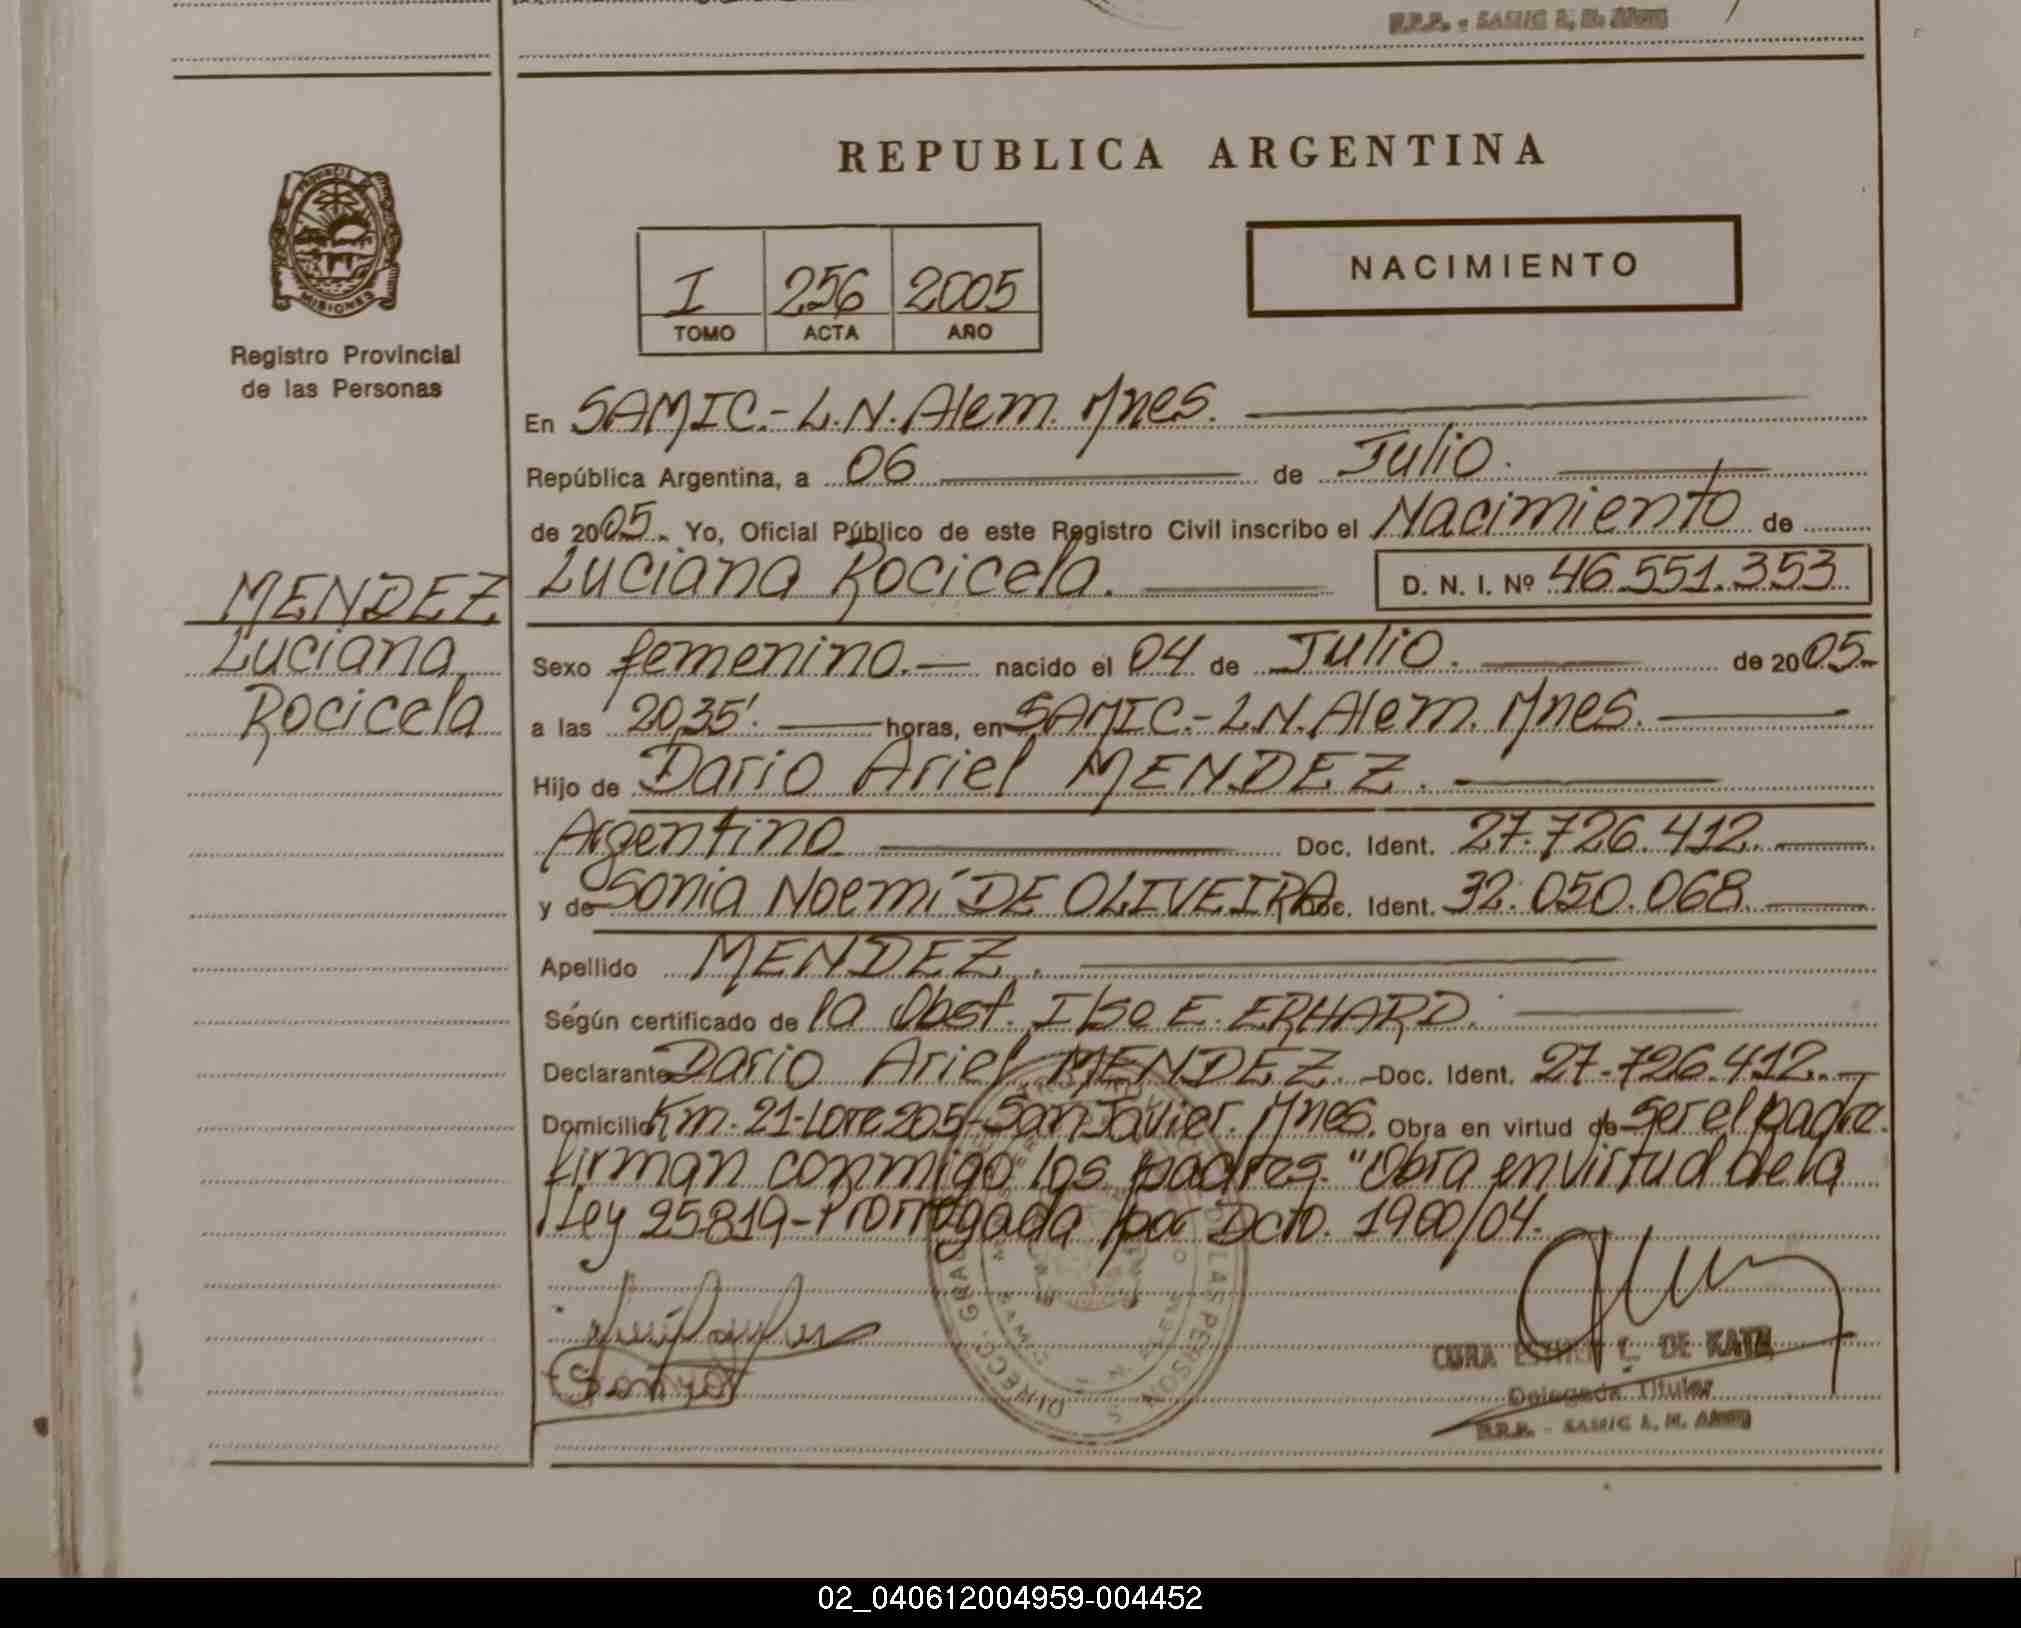 R.P.P. - SAMIC L. N. Alem
REPUBLICA ARGENTINA
PROVINCIA DE
MISIONES
Registro Provincial
de las Personas
I 256 2005
TOMO ACTA AÑO
NACIMIENTO
En SAMIC.- L.N. Alem. Mnes.
República Argentina, a 06 de Julio.
de 2005. Yo, Oficial Público de este Registro Civil inscribo el Nacimiento de
Luciana Rocicela. D. N. I. Nº 46.551.353
MENDEZ
Luciana
Rocicela
Sexo femenino. nacido el 04 de Julio. de 2005.
a las 20,35'. horas, en SAMIC.- L.N. Alem. Mnes.
Hijo de Dario Ariel MENDEZ.
Argentino Doc. Ident. 27.726.412.
y de Sonia Noemí DE OLIVEIRA Doc. Ident. 32.050.068.
Apellido MENDEZ.
Ségún certificado de la Obst. Ilse E. ERHARD.
Declarante Dario Ariel MENDEZ. Doc. Ident. 27.726.412.
Domicilio Km. 21-Lote 205-San Javier. Mnes. Obra en virtud de ser el padre.
firman conmigo los padres. "Obra en virtud de la
Ley 25819-Prorrogada por Dcto. 1900/04.
CUNA ESTHER L. DE KATZ
Delegada Titular
R.P.P. - SAMIC L. N. Alem
02_040612004959-004452